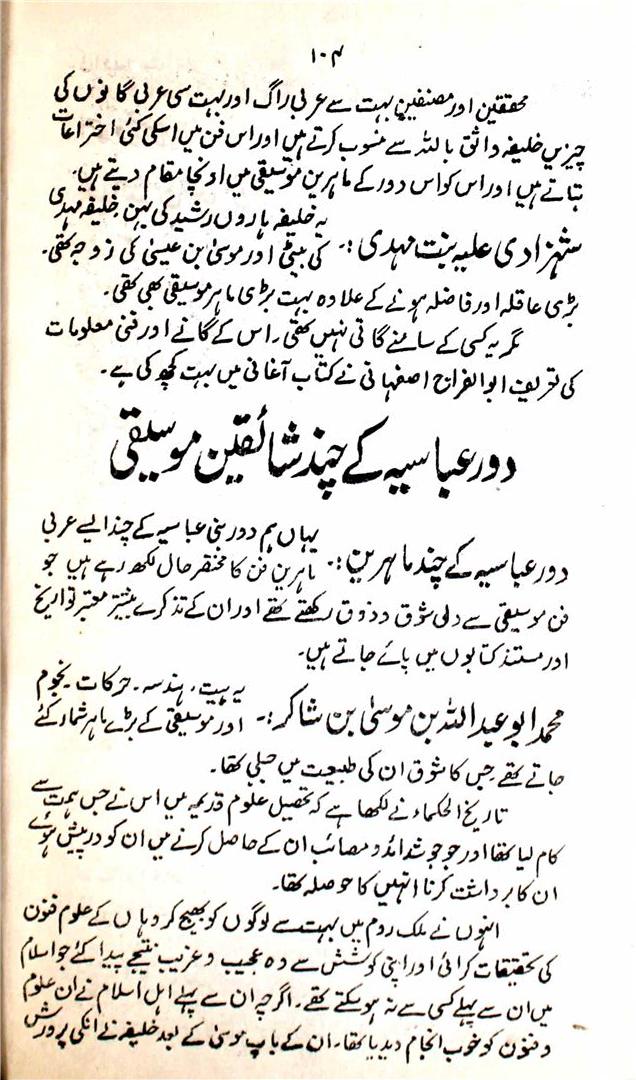 ۱۰۴
محققین اور مصنفین بہت سے عربی راگ اور بہت سی عربی گانوں کی
چیزیں خلیفہ واثق باللہ سے منسوب کرتے ہیں اور اس فن میں اسکی کئی اختراعات
بتاتے ہیں اور اس کو اس دور کے ماہرین موسیقی میں اونچا مقام دیتے ہیں۔
یہ خلیفہ ہاروں رشید کی بہن، خلیفہ مہدی
شہزادی علیہ بنت مہدی :۔ کی بیٹی اور موسیٰ بن عیسیٰ کی زوجہ تھی۔
بڑی عاقلہ اور فاضلہ ہونے کے علاوہ بہت بڑی ماہر موسیقی بھی تھی۔
مگر یہ کسی کے سامنے گاتی نہیں تھی۔ اس کے گانے اور فنی معلومات
کی تعریف ابوالفراح اصفہانی نے کتاب آغانی میں بہت کچھ کی ہے۔
دور عباسیہ کے چند شائقین موسیقی
یہاں ہم دور بنی عباسیہ کے چند ایسے عربی
دور عباسیہ کے چند ماہرین :۔ ماہرین فن کا مختصر حال لکھ رہے ہیں جو
فن موسیقی سے دلی شوق و ذوق رکھتے تھے اور ان کے تذکرے بیشتر معتبر تواریخ
اور مستند کتابوں میں پائے جاتے ہیں۔
یہ ہیت، ہندسہ۔ حرکات۔ نجوم
محمد ابو عبداللہ بن موسیٰ بن شاکر :۔ اور موسیقی کے بڑے ماہر شمار کئے
جاتے تھے۔ جس کا شوق ان کی طبیعت میں جبلی تھا۔
تاریخ الحکماء نے لکھا ہے کہ تحصیل علوم قدیمہ میں اس نے جس ہمت سے
کام لیا تھا اور جو جو شدائد و مصائب ان کے حاصل کرنے میں ان کو درپیش ہوئے
ان کا برداشت کرنا انہیں کا حوصلہ تھا۔
انہوں نے ملک روم میں بہت سے لوگوں کو بھیج کر وہاں کے علوم فنون
کی تحقیقات کرائی اور اپنی کوشش سے وہ عجیب و غریب نتیجے پیدا کئے جو اسلام
میں ان سے پہلے کسی سے نہ ہو سکتے تھے۔ اگرچہ ان سے پہلے اہل اسلام نے ان علوم
و فنون کو خوب انجام دیدیا تھا۔ ان کے باپ موسیٰ کے بعد خلیفہ نے انکی پرورش